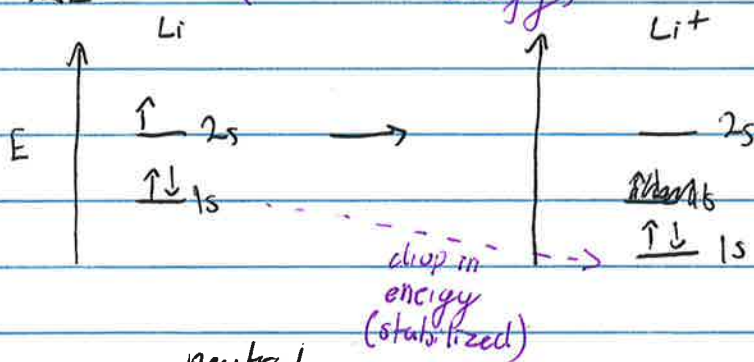 Li
Li+
E
↑ 2s
→
2s
↑↓ 1s
↑↓ 1s
drop in
energy
(stabilized)
neutral